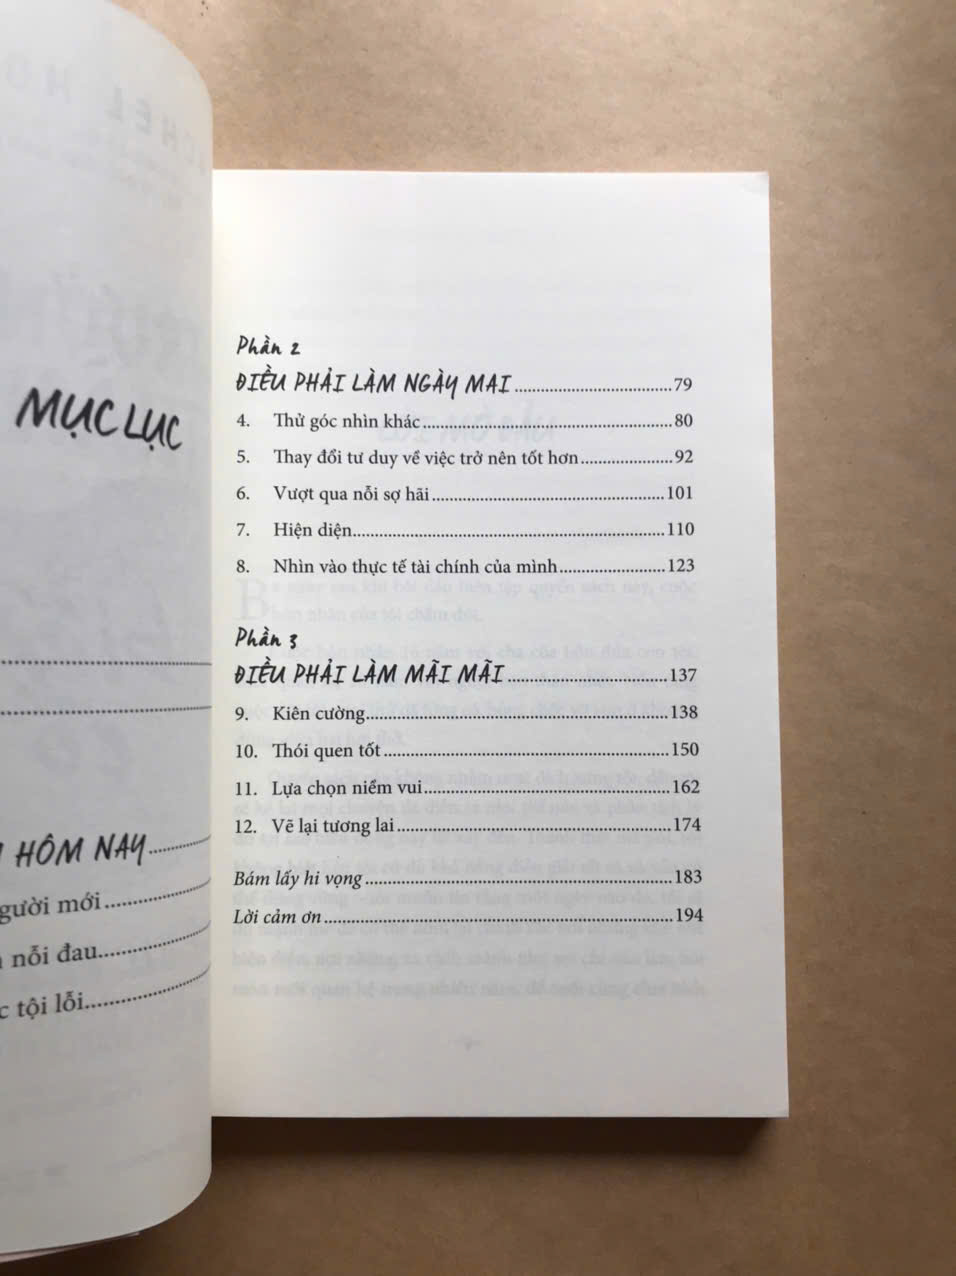 MỤC LỤC
HÔM NAY
người mới
nỗi đau
tội lỗi
Phần 2
ĐIỀU PHẢI LÀM NGÀY MAI 79
4. Thử góc nhìn khác 80
5. Thay đổi tư duy về việc trở nên tốt hơn 92
6. Vượt qua nỗi sợ hãi 101
7. Hiện diện 110
8. Nhìn vào thực tế tài chính của mình 123
Phần 3
ĐIỀU PHẢI LÀM MÃI MÃI 137
9. Kiên cường 138
10. Thói quen tốt 150
11. Lựa chọn niềm vui 162
12. Vẽ lại tương lai 174
Bám lấy hi vọng 183
Lời cảm ơn 194